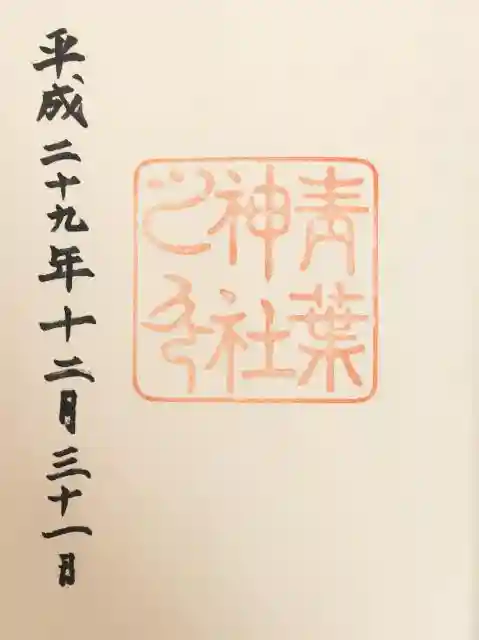 青葉
神社
之印
平成二十九年十二月三十一日